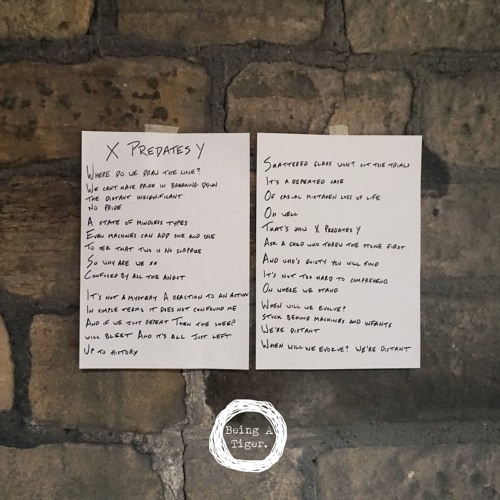 X PREDATES Y
WHERE DO WE DRAW THE LINE?
WE CANT HAVE PRIDE IN BREAKING DOWN
THE DISTANT INSIGNIFICANT
NO PRIDE
A STATE OF MINDLESS TYPES
EVEN MACHINES CAN ADD ONE AND ONE
TO SEE THAT TWO IS NO SURPRISE
SO WHY ARE WE SO
CONFUSED BY ALL THE ANGST
IT'S NOT A MYSTERY A REACTION TO AN ACTION
IN SIMPLE TERMS IT DOES NOT CONFOUND ME
AND IF WE JUST REPEAT THEN THE SHEEP
WILL BLEET AND IT'S ALL JUST LEFT
UP TO HISTORY
SHATTERED GLASS WON'T CUT THE TRIAL
IT'S A REPEATED CASE
OF CASUAL MISTAKEN LOSS OF LIFE
OH WELL
THAT'S HOW X PREDATES Y
ASK A CHILD WHO THREW THE STONE FIRST
AND WHO'S GUILTY YOU WILL FIND
IT'S NOT TOO HARD TO COMPREHEND
ON WHERE WE STAND
WHEN WILL WE EVOLVE?
STUCK BEHIND MACHINES AND INFANTS
WE'RE DISTANT
WHEN WILL WE EVOLVE? WE'RE DISTANT
Being A
Tiger.